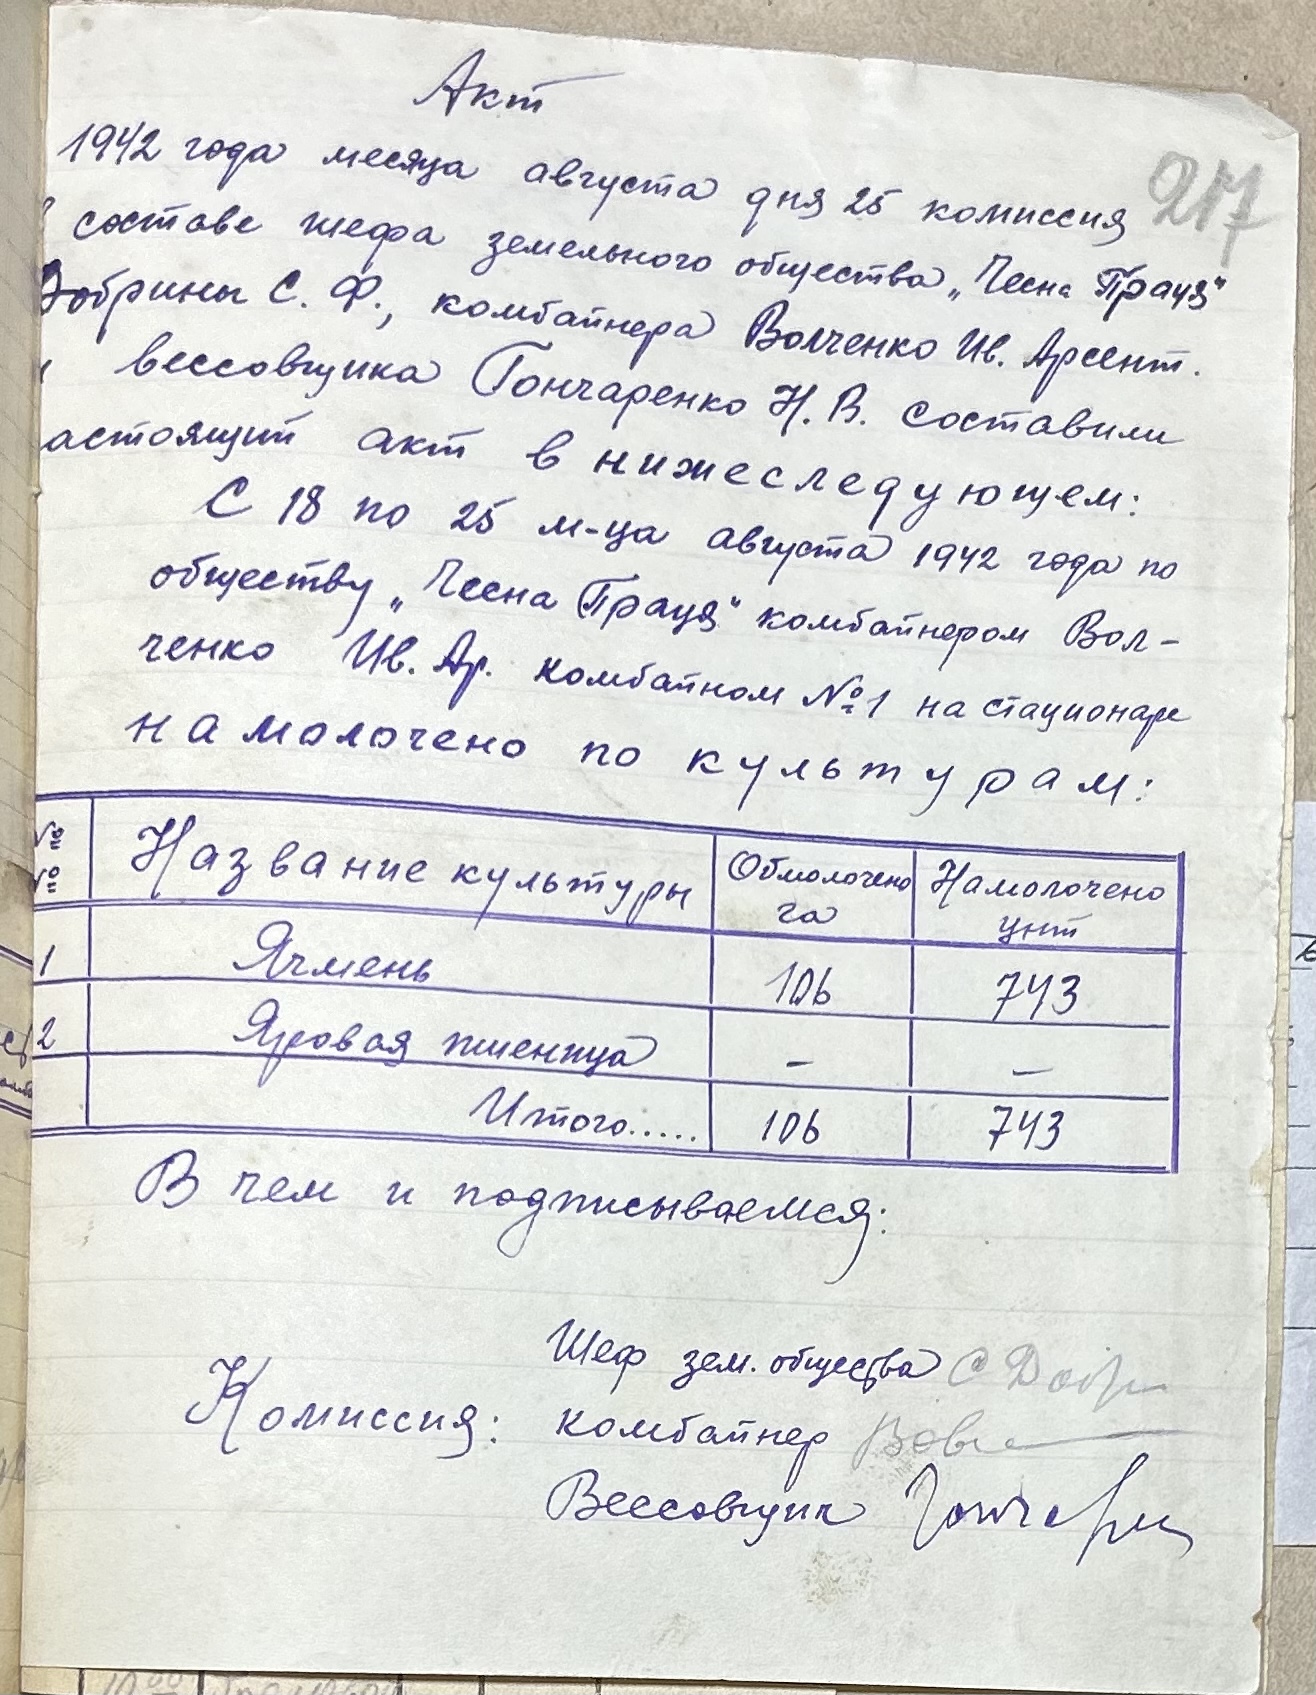 Акт
217
1942 года месяца августа дня 25 комиссия
составе шефа земельного общества „Чесна Праця"
Добрины С. Ф., комбайнера Волченко Ив. Арсент.
и вессовщика Гончаренко Н. В. составили
астоящий акт в нижеследующем:
С 18 по 25 м-ца августа 1942 года по
обществу „Чесна Праця" комбайнером Вол-
ченко Ив. Ар. комбайном №1 на стационаре
намолочено по культурам:
№№ по по Название культуры Обмолочено га Намолочено цнт
1 Ячмень 106 743
2 Яровая пшеница - -
Итого..... 106 743
В чем и подписываемся:
Шеф зем. общества С Добр
Комиссия: комбайнер
Вессовщик Гончар